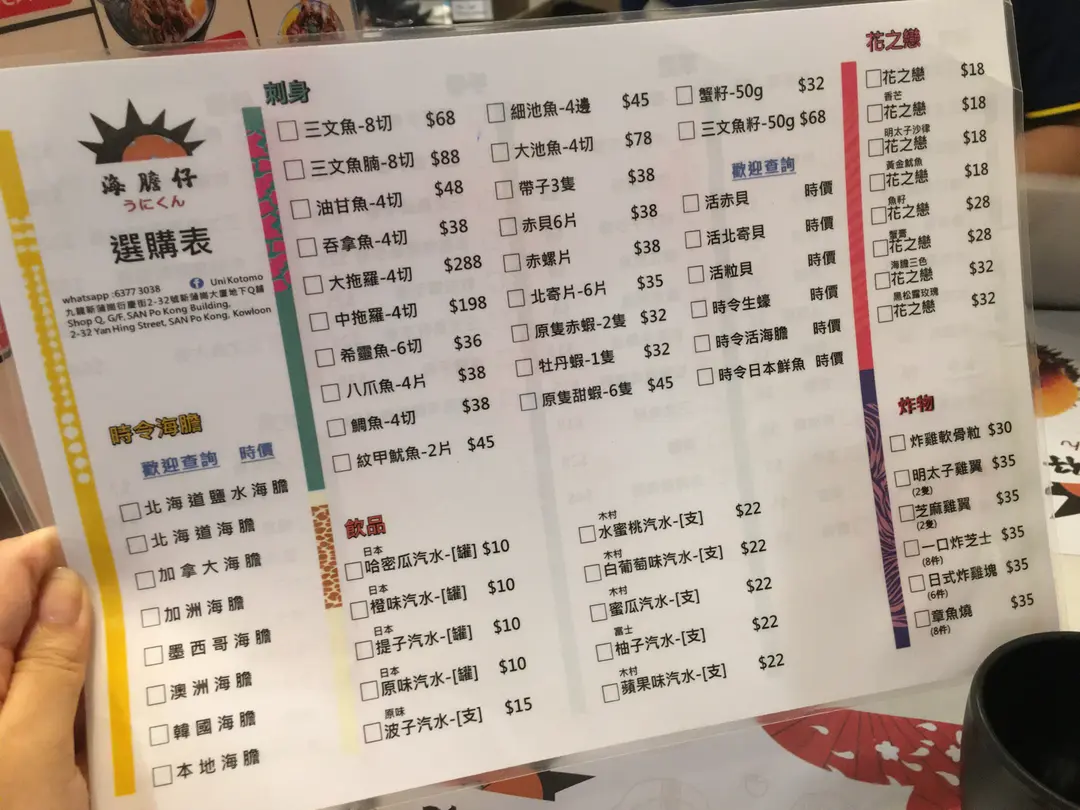 海膽仔
うにくん
選購表
whatsapp :6377 3038
UniKotomo
九龍新蒲崗衍慶街2-32號新蒲崗大廈地下Q舖
Shop Q, G/F, SAN Po Kong Building,
2-32 Yan Hing Street, SAN Po Kong, Kowloon
時令海膽
歡迎查詢 時價
北海道鹽水海膽
北海道海膽
加拿大海膽
加洲海膽
墨西哥海膽
澳洲海膽
韓國海膽
本地海膽
刺身
三文魚-8切 $68
三文魚腩-8切 $88
油甘魚-4切 $48
吞拿魚-4切 $38
大拖羅-4切 $288
中拖羅-4切 $198
希靈魚-6切 $36
八爪魚-4片 $38
鯛魚-4切 $38
紋甲魷魚-2片 $45
細池魚-4邊 $45
大池魚-4切 $78
帶子3隻 $38
赤貝6片 $38
赤螺片 $38
北寄片-6片 $35
原隻赤蝦-2隻 $32
牡丹蝦-1隻 $32
原隻甜蝦-6隻 $45
蟹籽-50g $32
三文魚籽-50g $68
歡迎查詢
活赤貝 時價
活北寄貝 時價
活粒貝 時價
時令生蠔 時價
時令活海膽 時價
時令日本鮮魚 時價
飲品
日本
哈密瓜汽水-[罐] $10
日本
橙味汽水-[罐] $10
日本
提子汽水-[罐] $10
日本
原味汽水-[罐] $10
原味
波子汽水-[支] $15
木村
水蜜桃汽水-[支] $22
木村
白葡萄味汽水-[支] $22
木村
蜜瓜汽水-[支] $22
富士
柚子汽水-[支] $22
木村
蘋果味汽水-[支] $22
花之戀
花之戀 $18
香芒
花之戀 $18
明太子沙律
花之戀 $18
黃金魷魚
花之戀 $18
魚籽
花之戀 $28
蟹膏
花之戀 $28
海膽三色
花之戀 $32
黑松露玫瑰
花之戀 $32
炸物
炸雞軟骨粒 $30
明太子雞翼 $35
(2隻)
芝麻雞翼 $35
(2隻)
一口炸芝士 $35
(8件)
日式炸雞塊 $35
(6件)
章魚燒 $35
(8件)